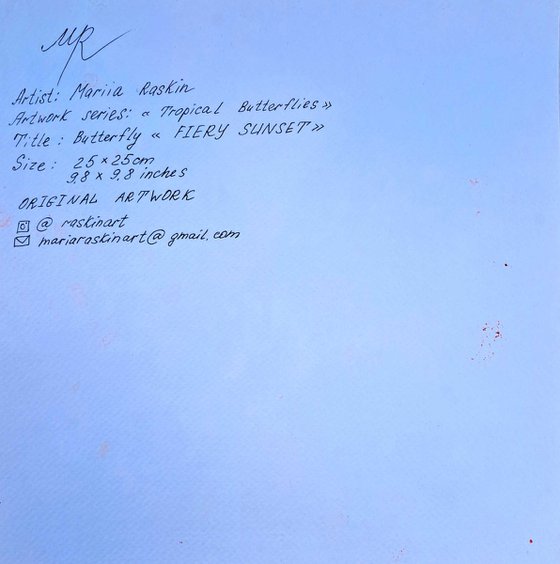 MR
Artist: Mariia Raskin
Artwork series: « Tropical Butterflies »
Title: Butterfly « FIERY SUNSET »
Size: 25 × 25 cm
9,8 × 9,8 inches
ORIGINAL ARTWORK
@ raskinart
mariaraskinart@gmail.com